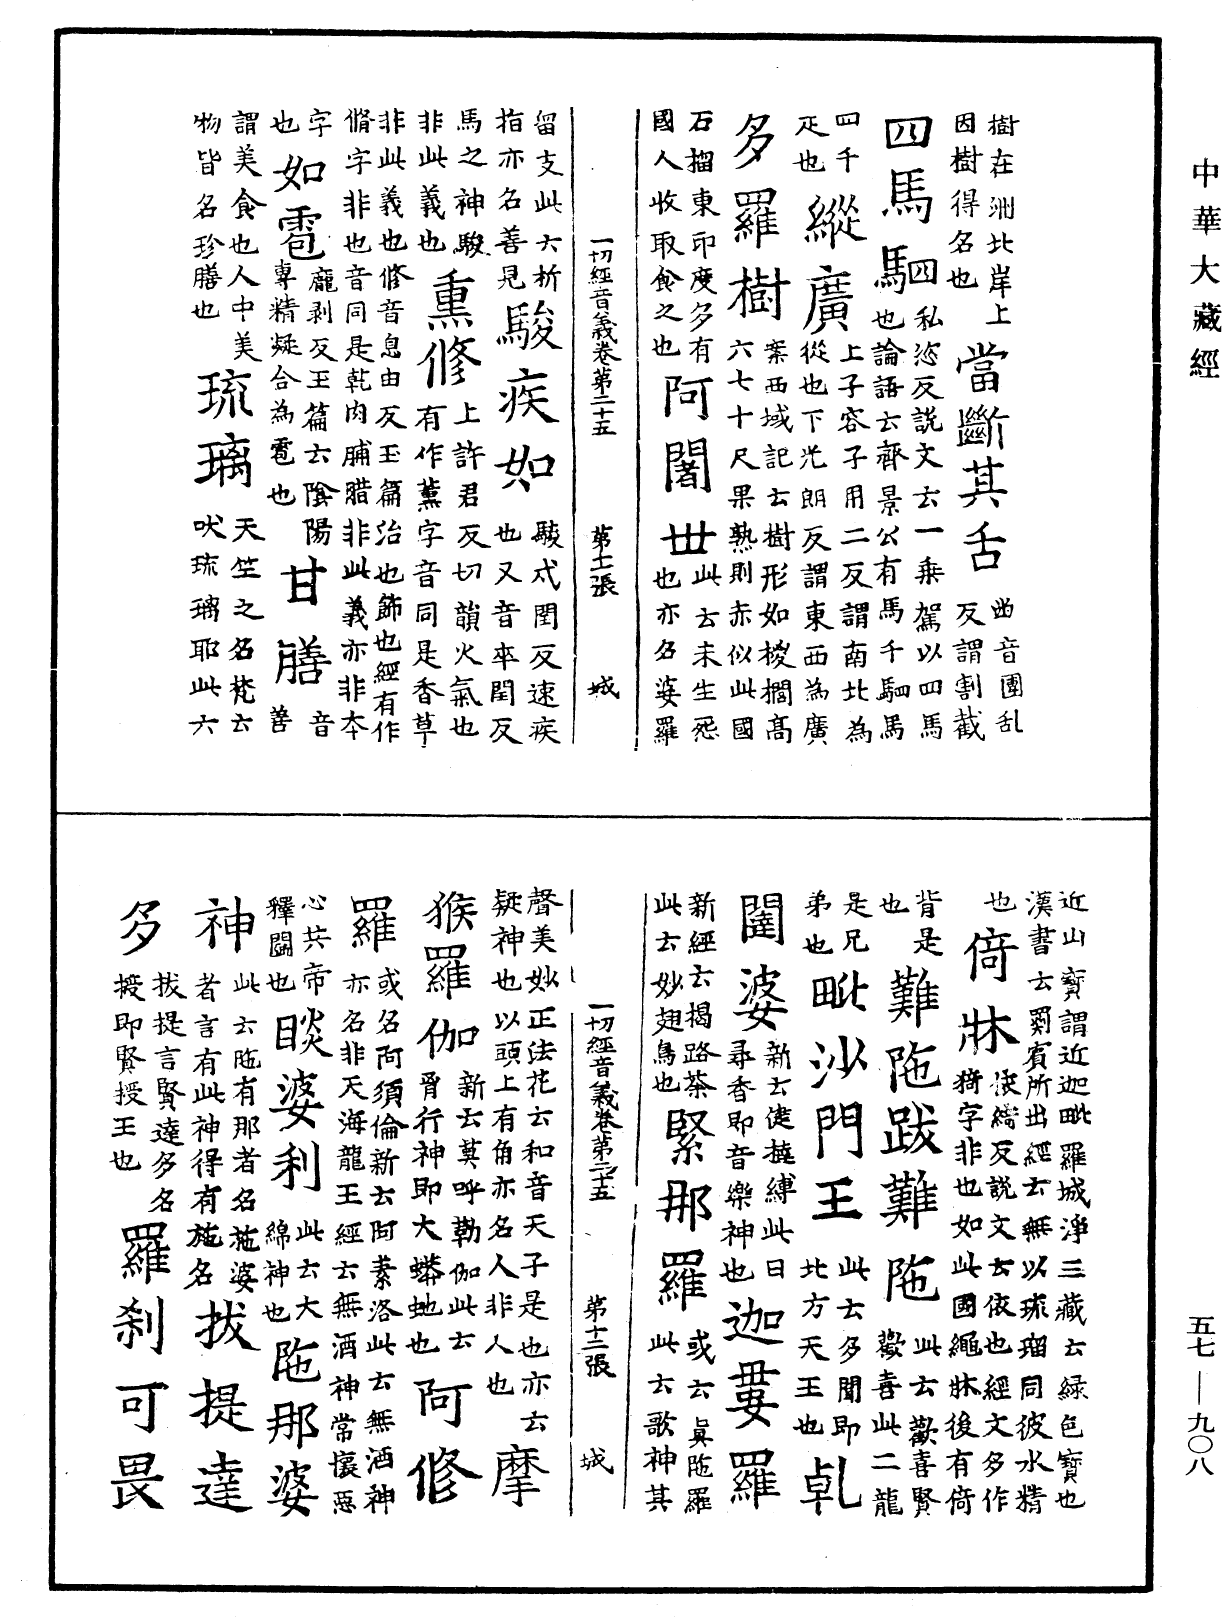 中華大藏經
樹在洲北岸上
因樹得名也
當斷其舌
齒音團乱
反謂割截
四馬駟
四私恣反說文云一乗駕以四馬
也論語云齊景公有馬千駟馬
四千
疋也
縱廣
上子容子用二反謂南北為
從也下光朗反謂東西為廣
多羅樹
案西域記云樹形如椶櫚高
六七十尺果熟則赤似此國
石榴東印度多有
國人收取食之也
阿闍世
此云未生怨
也亦名婆羅
一切經音義卷第二十五 第十一張 城
留支此云折
指亦名善見
駿疾如
駿式閏反速疾
也又音卒閏反
馬之神駿
非此義也
熏修
上許君反切韻火氣也
有作薰字音同是香草
非此義也修音息由反玉篇治也飾也經有作
脩字非也音同是乾肉脯腊非此義亦非本
字
也
如雹
龐剥反玉篇云隂陽
專精凝合為雹也
甘膳
音
善
謂美食也人中美
物皆名珍膳也
琉璃
天竺之名梵云
吠琉璃耶此六
近山寶謂近迦毗羅城淨三藏云緑色寶也
漢書云罽賓所出經云無以琭瑠同彼水精
也
倚牀
倚字非也如此國繩牀後有倚
背是
也
難陁跋難陁
此云歡喜賢
歡喜此二龍
是兄
弟也
毗沙門王
此云多聞即
北方天王也
乹闥婆
新云健撻縛此曰
尋香即音樂神也
迦婁羅
新經云揭路荼
此云妙翅鳥也
緊那羅
或云真陁羅
此云歌神其
一切經音義卷第二十五 第十二張 城
聲美妙正法花云和音天子是也亦云
疑神也以頭上有角亦名人非人也
摩猴羅伽
新云莫呼勒伽此云
胷行神即大蟒虵也
阿修羅
或名阿須倫新云阿素洛此云無酒神
亦名非天海龍王經云無酒神常懷惡
心共帝
釋鬬也
睒婆利
此云大
綿神也
陁那婆神
此云陁有那者名施婆
者言有此神得有施名
拔提達多
拔提言賢達多名
授即賢授王也
羅刹可畏
五七—九〇八